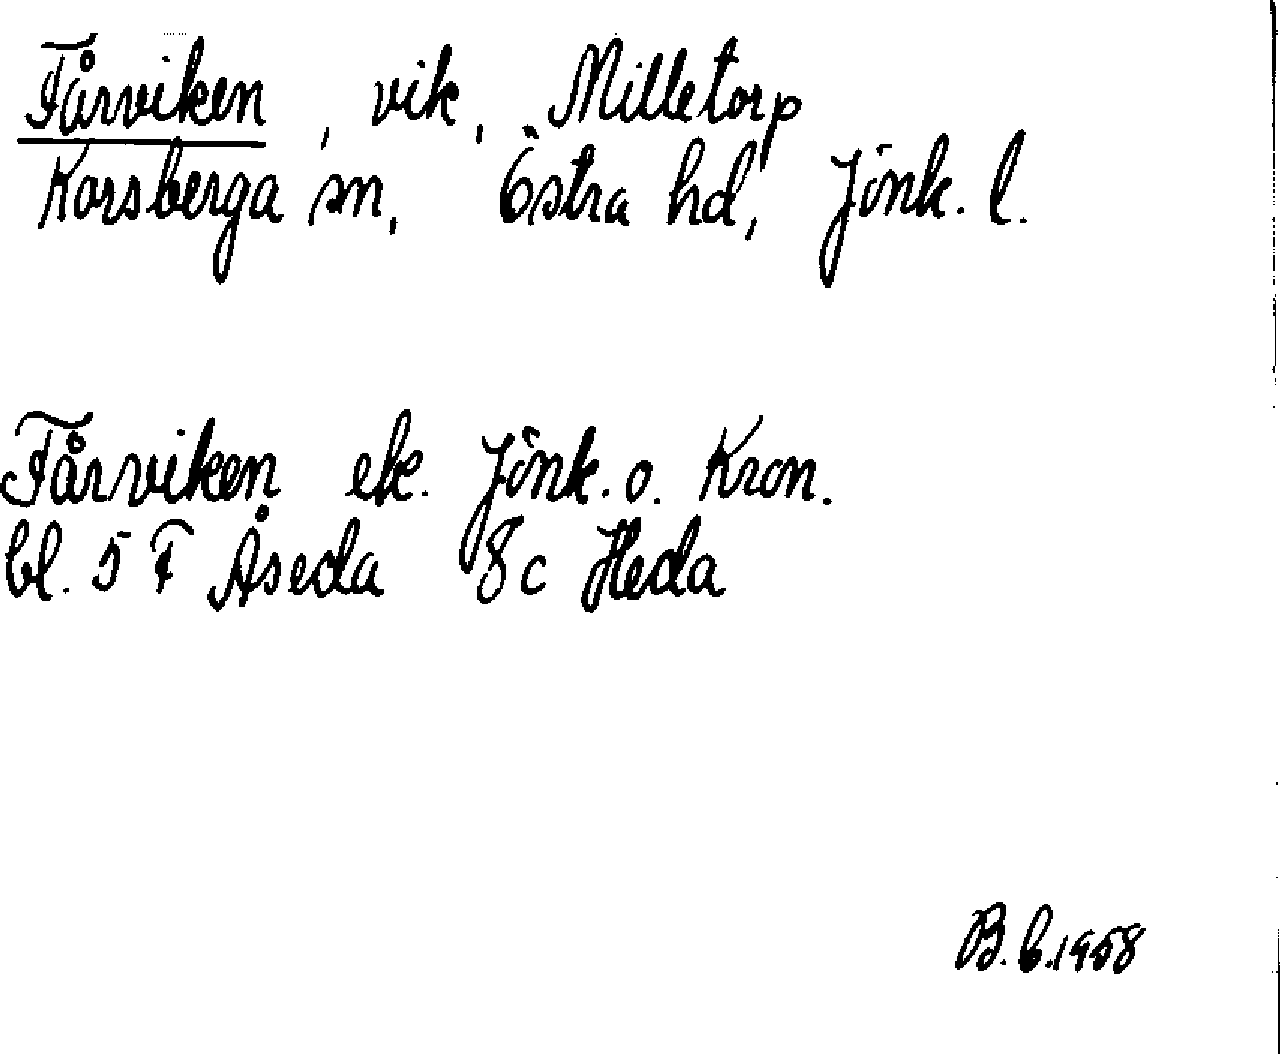 Fårviken, vik, Milletorp
Korsberga sn, Östra hd, Jönk. l.
Fårviken ek. Jönk. o. Kron.
bl. 5 F Åseda 8c Heda
B. b. 1958